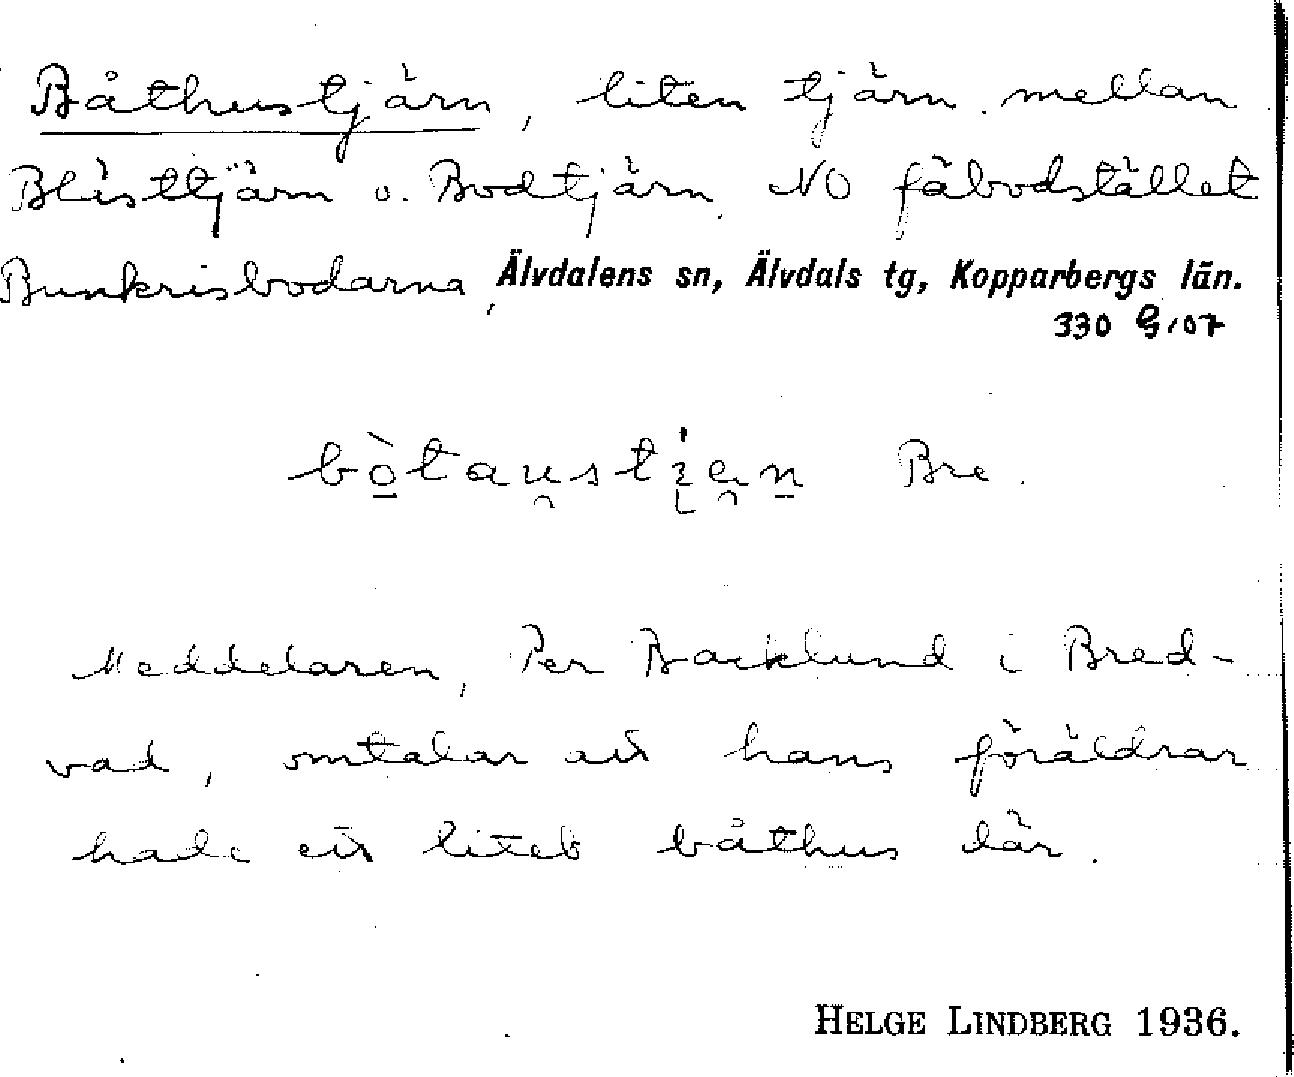 Båthustjärn, liten tjärn mellan
Blästtjärn o. Bodtjärn NO fäbodstället
Bunkrisbodarna, Älvdalens sn, Älvdals tg, Kopparbergs län.
330
Bre.
Meddelaren, Per Backlund i Bred-
vad, omtalar att hans föräldrar
hade ett litet båthus där.
HELGE LINDBERG 1936.